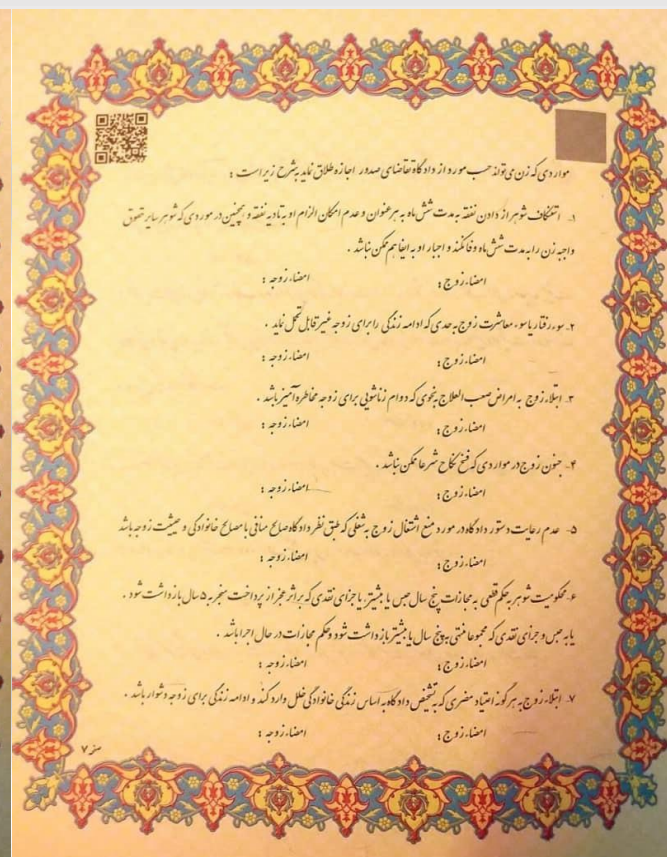 مواردی که زن می‌تواند حسب مورد از دادگاه تقاضای صدور اجازه طلاق نماید به شرح زیر است :
۱. استنکاف شوهر از دادن نفقه به مدت شش ماه به هر عنوان و عدم امکان الزام او به تادیه نفقه و همچنین در موردی که شوهر سایر حقوق
واجبه زن را به مدت شش ماه وفا نکند و اجبار او به ایفا هم ممکن نباشد .
امضاء زوج : امضاء زوجه :
۲- سوء رفتار یا سوء معاشرت زوج به حدی که ادامه زندگی را برای زوجه غیر قابل تحمل نماید .
امضاء زوج : امضاء زوجه :
۳- ابتلاء زوج به امراض صعب العلاج به نحوی که دوام زناشویی برای زوجه مخاطره آمیز باشد .
امضاء زوج : امضاء زوجه :
۴- جنون زوج در مواردی که فسخ نکاح شرعا ممکن نباشد .
امضاء زوج : امضاء زوجه :
۵- عدم رعایت دستور دادگاه در مورد منع اشتغال زوج به شغلی که طبق نظر دادگاه صالح منافی با مصالح خانوادگی و حیثیت زوجه باشد
امضاء زوج : امضاء زوجه :
۶- محکومیت شوهر به حکم قطعی به مجازات پنج سال حبس یا بیشتر یا جزای نقدی که بر اثر عجز از پرداخت منجر به ۵ سال بازداشت شود .
یا به حبس و جزای نقدی که مجموعا منتهی به پنج سال یا بیشتر بازداشت شود و حکم مجازات در حال اجرا باشد .
امضاء زوج : امضاء زوجه :
۷. ابتلاء زوج به هر گونه اعتیاد مضری که به تشخیص دادگاه به اساس زندگی خانوادگی خلل وارد کند و ادامه زندگی برای زوجه دشوار باشد .
امضاء زوج : امضاء زوجه :
۷